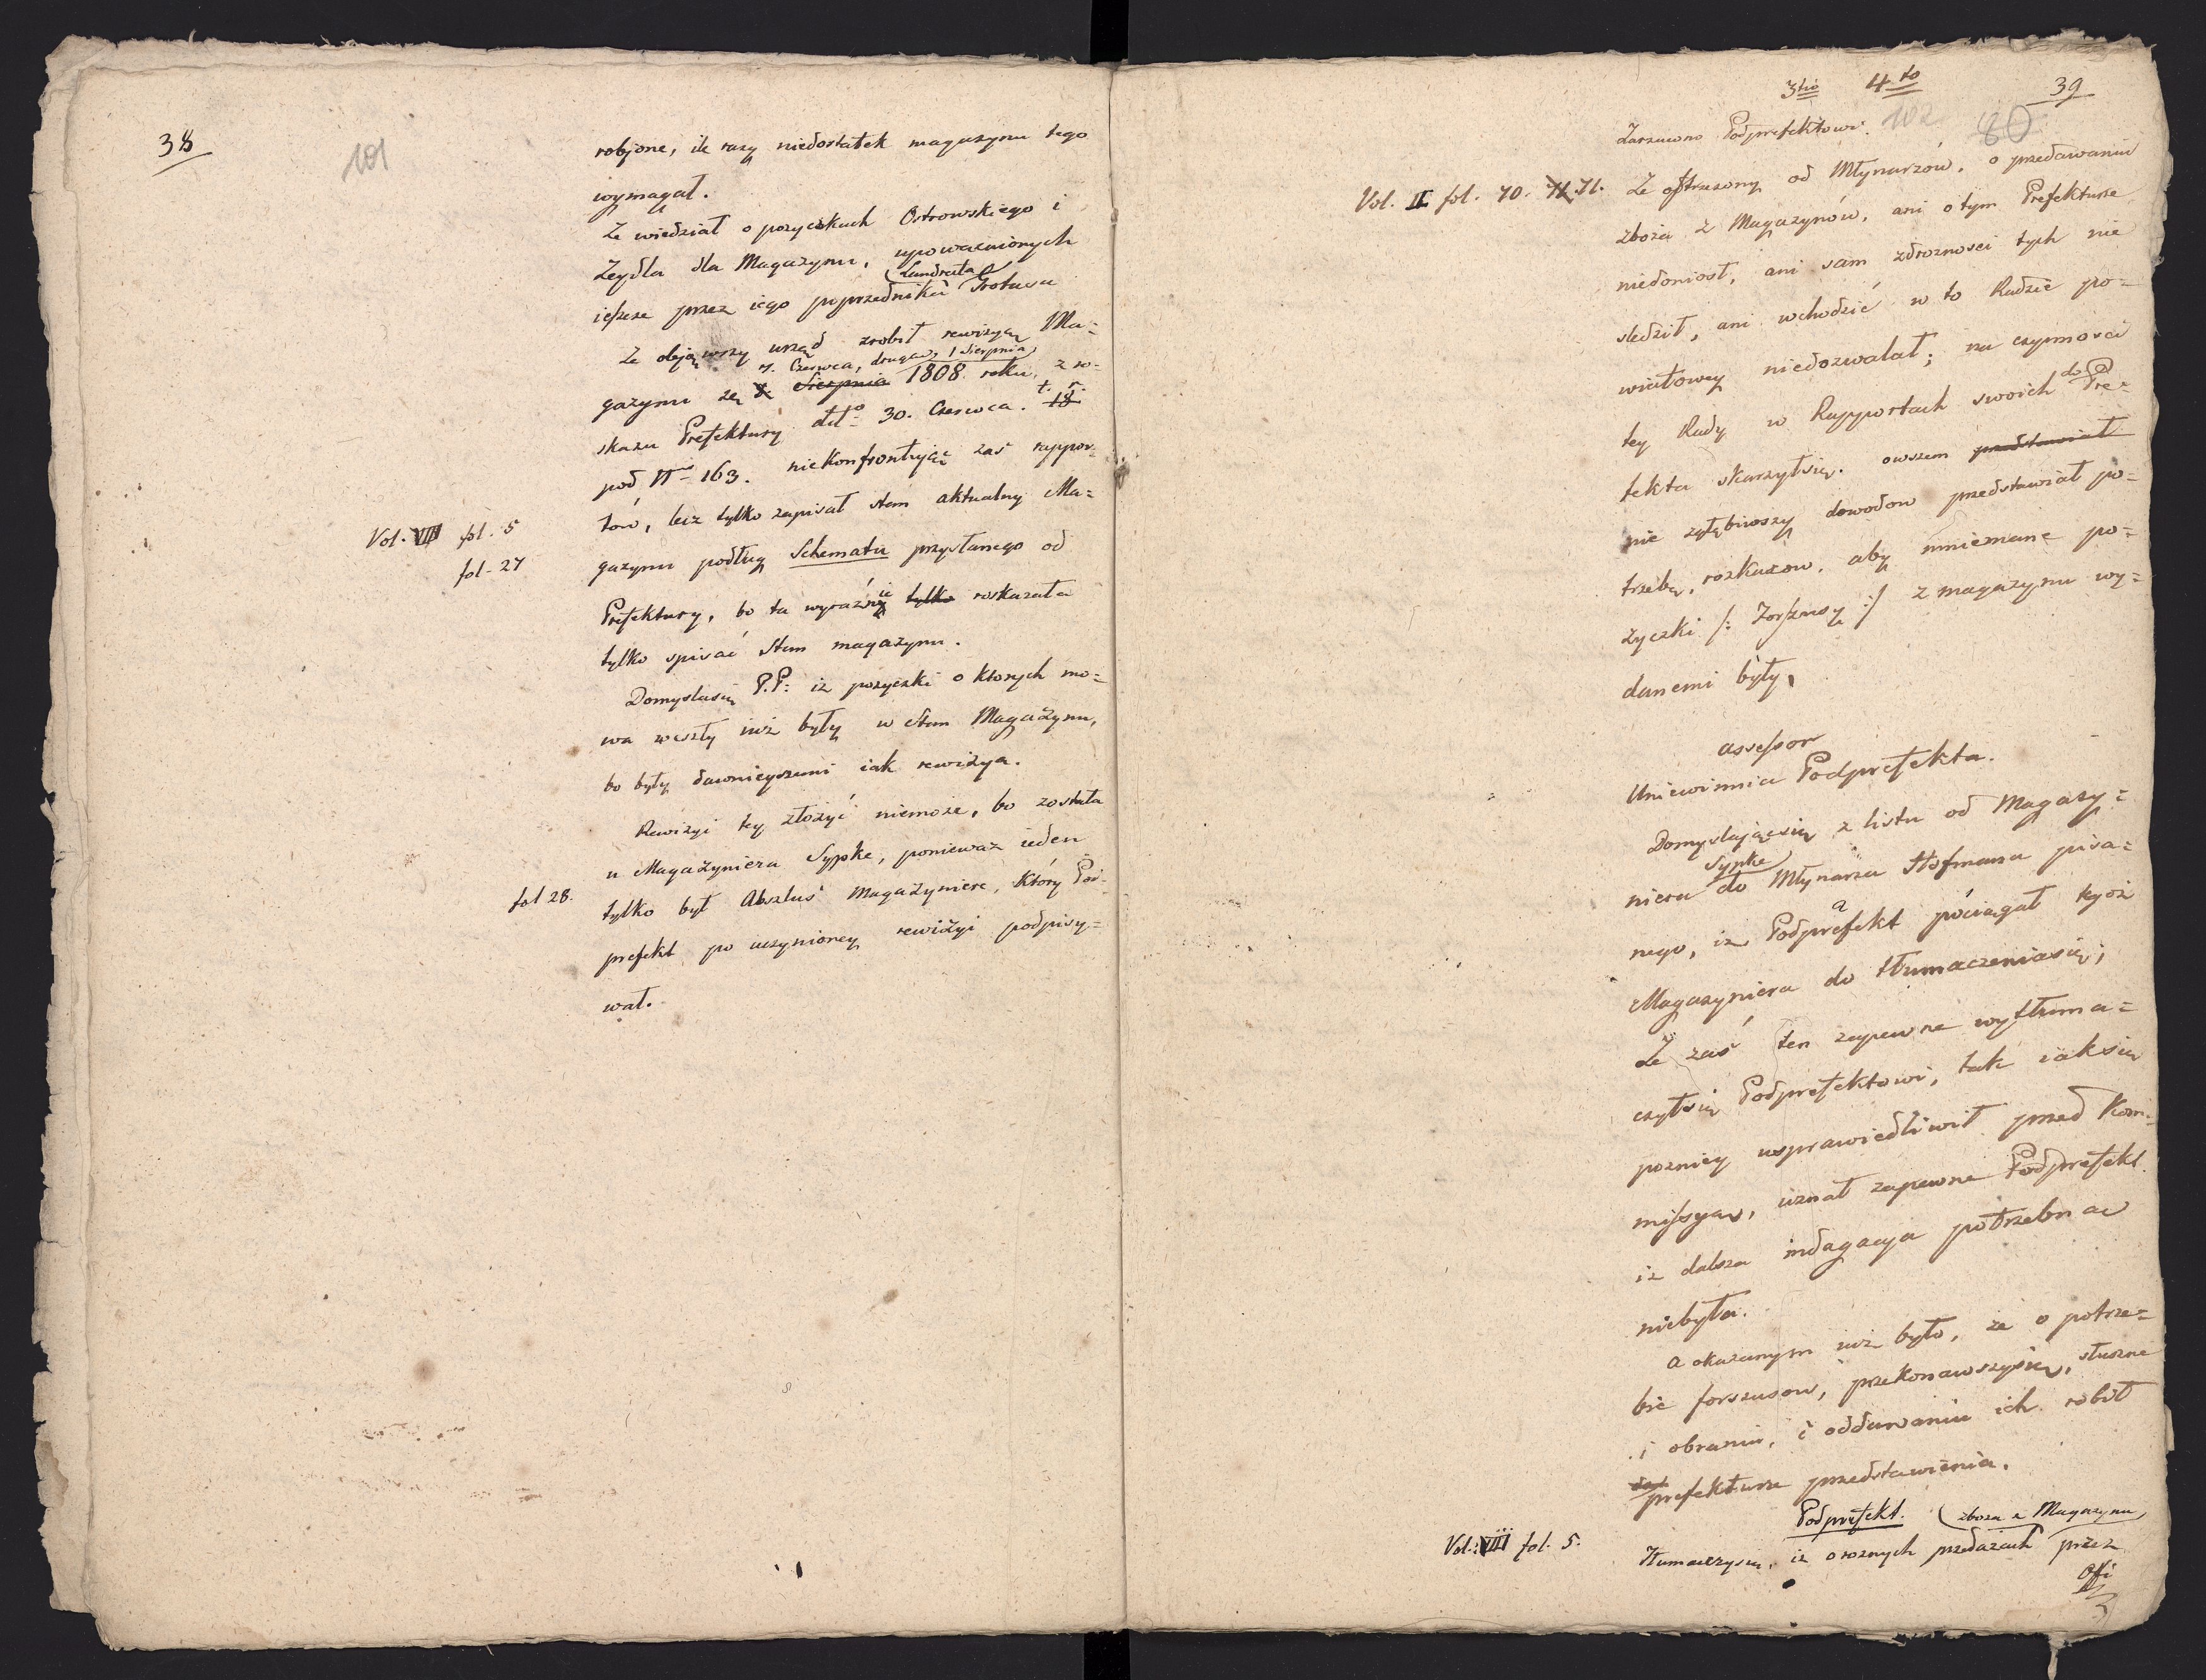 38
101
robione, ile razy niedostatek magazynu tego
wymagał.
Ze wiedział o pozyczkach Ostrowskiego i
Zeydla dla Magazynu, upoważnionych
ieszcze przez iego poprzednika Landrata Grotusa
Ze obiąwszy urząd zrobił rewizyą Ma=
7. Czerwca, drugą, 1 Sierpnia
gazynu Sierpnia 1808 roku, z ro=
skazu Prefektury dto 30. Czerwca. t. r. 18
pod Nro 163. niekonfrontuiąc zaś rappor=
Vol. VIII fol. 5
tow, lecz tylko zapisał stan aktualny Ma=
fol. 27
gazynu podług Schematu przysłanego od
Prefektury, bo ta wyraźnie tylko roskazała
tylko spisać stan magazynu.
Domyslasię P.P: iż pozyczki o ktorych mo=
wa weszły iuż były w stan Magażynu,
bo były dawnieyszemi iak rewizya.
Rewizyi tey złożyć niemoże, bo została
u Magażyniera Sypke, ponieważ ieden
fol 28.
tylko był Abszlus Magażyniere, który Pod=
prefekt po uczynioney rewiżyi podpisy=
wał.
3tio 4to
39
102
80
Zarzucono Podprefektowi.
Vol. II fol. 70. 71.
Ze ostrzeżony od Młynarzów, o przedawaniu
zboża z Magazynów, ani o tym Prefekturze
niedoniosł, ani sam zdrozności tych nie
sledził, ani wchodzić w to Radzie po=
wiatowey niedozwalał; na czynności
tey Rady w Rapportach swoich do Pre=
fekta skarzyłsię. owszem przedstawiał
nie zgłębiwszy dowodow przedstawiał po=
trzebę, rozkazow, aby mniemane po=
życzki /: Forszusy :/ z magazynu wy=
danemi były,
assessor
Uniewinnia Podprefekta.
Domyslaiącsię z listu od Magazy=
niera Sypke do Młynarza Hofmana pisa=
nego, iz Podprefekt pociągał tegoż
Magazyniera do tłumaczeniasię;
Ze zaś ten zapewne wytłuma=
czyłsię Podprefektowi, tak iaksię
pozniey usprawiedliwił przed Kom=
missyą, uznał zapewne Podprefekt
iż dalsza indagacya potrzebną
niebyła.
a okazanym iuż było, że o potrze=
bie forszusow, przekonawszysię, słuszne
i obraniu, i oddawaniu ich robił
prefekturze przedstawienia.
Podprefekt.
Vol: VIII fol. 5.
Tłumaczysię, iż o roznych przedażach zboża z Magazynu przez
Offi